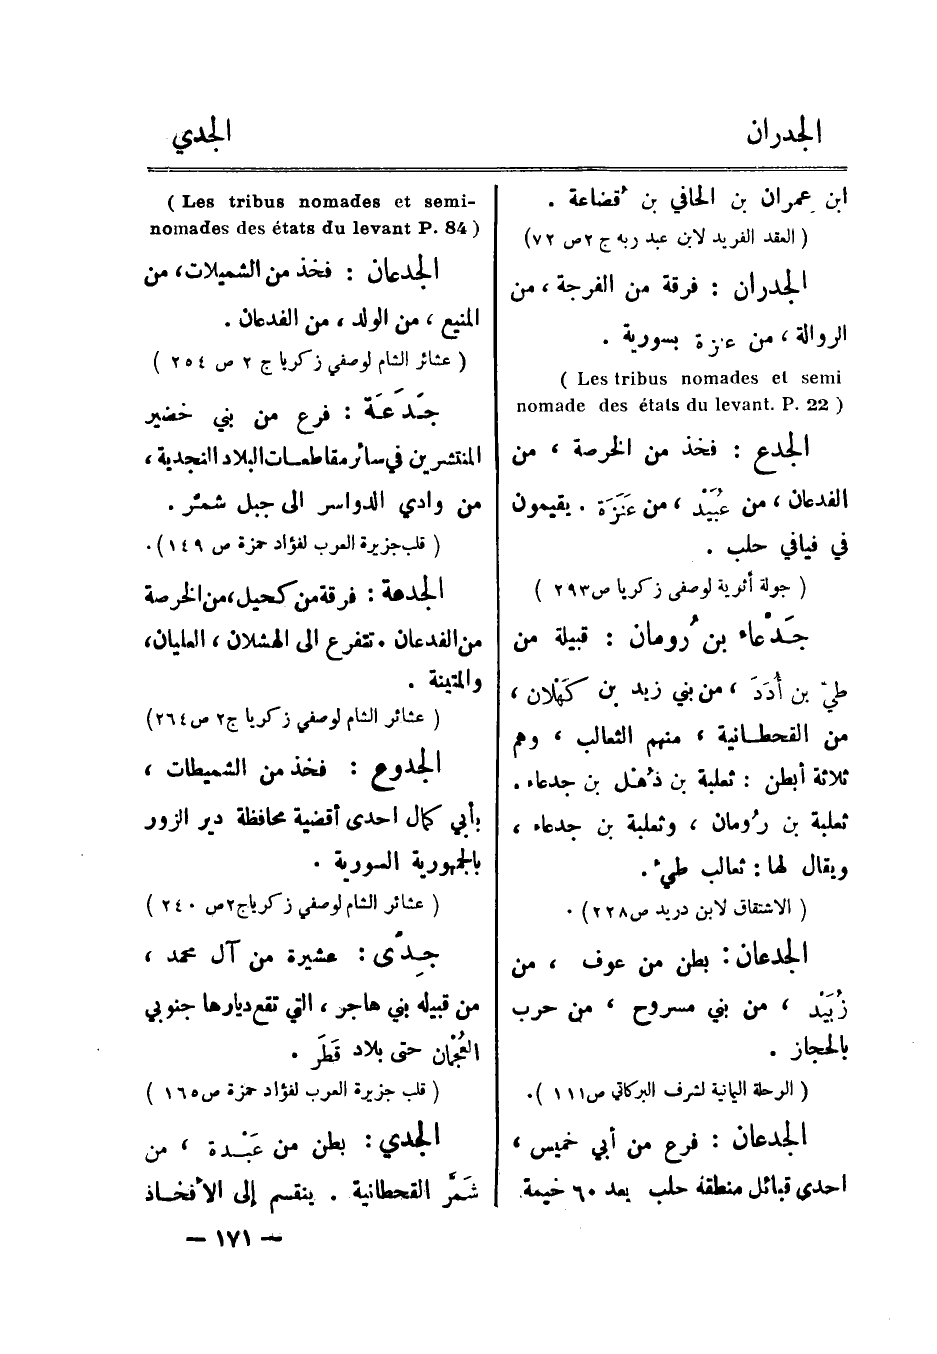 الجدران
الجدي
ابن عمران بن الحافي بن قُضاعة .
( العقد الفريد لابن عبد ربه ج ٢ ص ٧٢)
الجدران : فرقة من الفرجة ، من
الروالة ، من عنزة بسورية .
( Les tribus nomades et semi
nomade des états du levant. P. 22 )
الجدع : فخذ من الخرصة ، من
الفدعان ، من عُبَيْد ، من عَنَزَة . يقيمون
في فيافي حلب .
( جولة أثرية لوصفي زكريا ص ٢٩٣ )
جَدْعاء بن رُومان : قبيلة من
طيّ بن أُدَدَ ، من بني زيد بن كَهْلان ،
من القحطانية ، منهم الثعالب ، وهم
ثلاثة أبطن : ثعلبة بن ذُهْل بن جدعاء .
ثعلبة بن رُومان ، وثعلبة بن جدعاء ،
ويقال لها : ثعالب طيء .
( الاشتقاق لابن دريد ص ٢٢٨) .
الجدعان : بطن من عوف ، من
زُبَيْد ، من بني مسروح ، من حرب
بالحجاز .
( الرحلة اليمانية لشرف البركاتي ص ١١١ ) .
الجدعان : فرع من أبي خميس ،
احدى قبائل منطقة حلب يعد ٦٠ خيمة
( Les tribus nomades et semi-
nomades des états du levant P. 84 )
الجدعان : فخذ من الشميلات ، من
المنيع ، من الولد ، من الفدعان .
( عشائر الشام لوصفي زكريا ج ٢ ص ٢٥٤ )
جَدَعَة : فرع من بني خضير
المنتشرين في سائر مقاطعات البلاد النجدية ،
من وادي الدواسر الى جبل شمّر .
( قلب جزيرة العرب لفؤاد حمزة ص ١٤٩) .
الجدعة : فرقة من كحيل ، من الخرصة
من الفدعان . تتفرع الى الهشلان ، العليان ،
والمتينة .
( عشائر الشام لوصفي زكريا ج ٢ ص ٢٦٤)
الجدوع : فخذ من الشميطات ،
بأبي كمال احدى أقضية محافظة دير الزور
بالجمهورية السورية .
( عشائر الشام لوصفي زكريا ج ٢ ص ٢٤٠ )
جِدّى : عشيرة من آل محمد ،
من قبيلة بني هاجر ، التي تقع ديارها جنوبي
العُجْمان حتى بلاد قَطَر .
( قلب جزيرة العرب لفؤاد حمزة ص ١٦٥ )
الجدي : بطن من عَبْدة ، من
شَمَّر القحطانية . ينقسم إلى الأفخاذ
— ١٧١ —